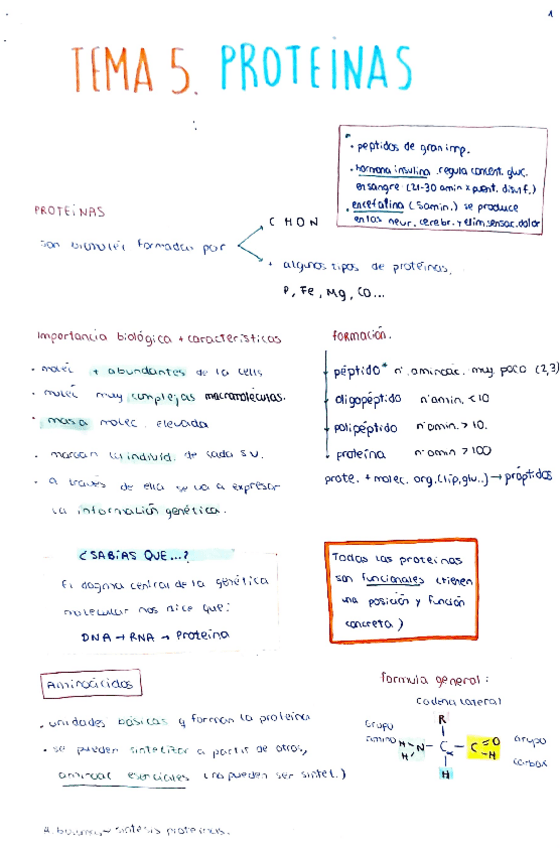 1
TEMA 5. PROTEÍNAS
*
• péptidos de gran imp.
• hormona insulina regula concent. gluc.
en sangre (21-30 amin x puent. disulf.)
• encefalina (5amin.) se produce
en las neur. cerebr. y elim. sensac. dolor
PROTEÍNAS
son biomoléc formadas por
C H O N
+ algunos tipos de proteínas.
P, Fe, Mg, Co...
Importancia biológica + características
• moléc + abundantes de la cells
• moléc muy complejas macromoléculas.
• masa molec. elevada
• marcan la individ. de cada s.v.
• a través de ella se va a expresar
la información genética.
formación.
péptido* nº aminoác. muy poco (2,3)
oligopéptido nºamin. <10
polipéptido nºamin. > 10.
proteína nºamin >100
prote. + molec. org. (lip, glu..) → próptidos
¿SABÍAS QUE...?
El dogma central de la genética
molecular nos dice que:
DNA → RNA → Proteína
Todas las proteínas
son funcionales (tienen
una posición y función
concreta)
Aminoácidos
• unidades básicas q forman la proteína
• se pueden sintetizar a partir de otros,
aminoac esenciales (no pueden ser sintet.)
síntesis proteínas.
formula general:
cadena lateral
R
Grupo
amino
H - N - C - C = O
H
- H
H
Grupo
carbox